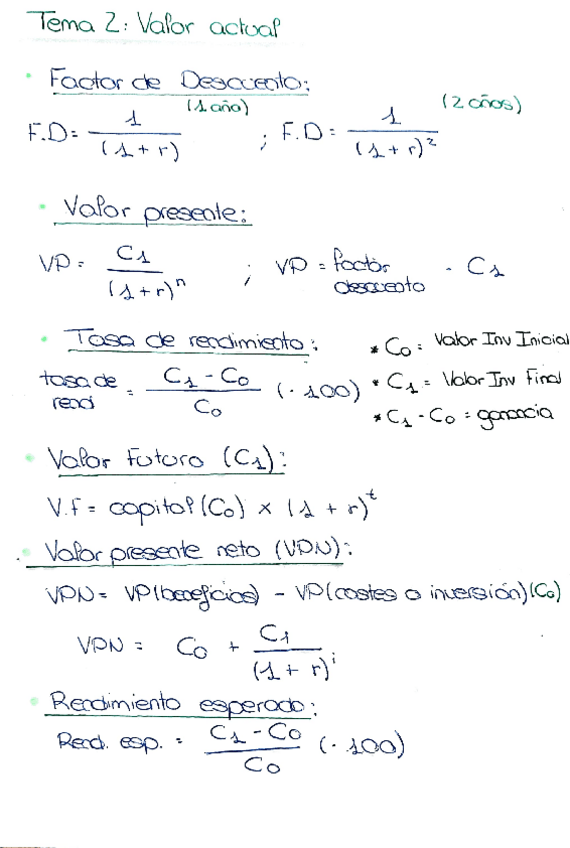 Tema 2: Valor actual
• Factor de Descuento:
F.D = 1 / (1 + r) (1 año) ; F.D = 1 / (1 + r)² (2 años)
• Valor presente:
VP = C₁ / (1 + r)ⁿ ; VP = factor descuento · C₁
• Tasa de rendimiento:
tasa de rend = (C₁ - C₀) / C₀ (· 100)
* C₀ = Valor Inv Inicial
* C₁ = Valor Inv Final
* C₁ - C₀ = ganancia
• Valor Futuro (C₁):
V.f = capital (C₀) × (1 + r)ᵗ
• Valor presente neto (VPN):
VPN = VP(beneficios) - VP(costes o inversión)(C₀)
VPN = C₀ + C₁ / (1 + r)ⁱ
• Rendimiento esperado:
Rend. esp. = (C₁ - C₀) / C₀ (· 100)